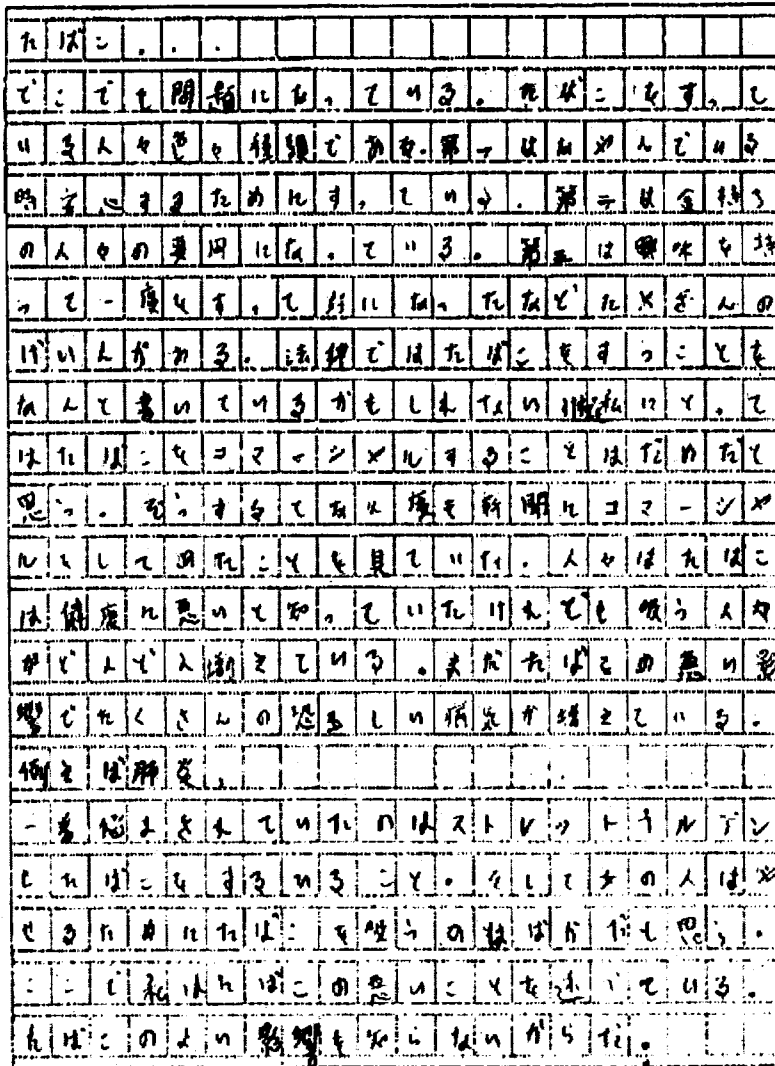 たばこ...
どこでも問題になっている。たばこをすって
いる人々色々種類である.第一はなやんでいる
時安心するためにすっている.第二は金持ち
の人々の道円になっている。第三は興味を持
って一度をすって好になったなどたくさんの
げいんがある.法律ではたばこをすうことを
なんと書いているかもしれない私にとって
はたばこをコマーシャルすることはだめだと
思う.そうするてなん度も新聞にコマーシャ
ルとして出たことを見ていた.人々はたばこ
は健康に悪いと知っていたけれども吸う人々
がどんどん増えている.まだたばこの悪い影
響でたくさんの恐ろしい病気が増えている.
例えば肺炎,
一番悩まされていたのはストレットチルデン
とたばこをするいること.そして女の人はや
せるためにたばこを吸うのはばかだと思う.
ここで私はたばこの悪いことを述べている.
たばこのよい影響を知らないからだ.